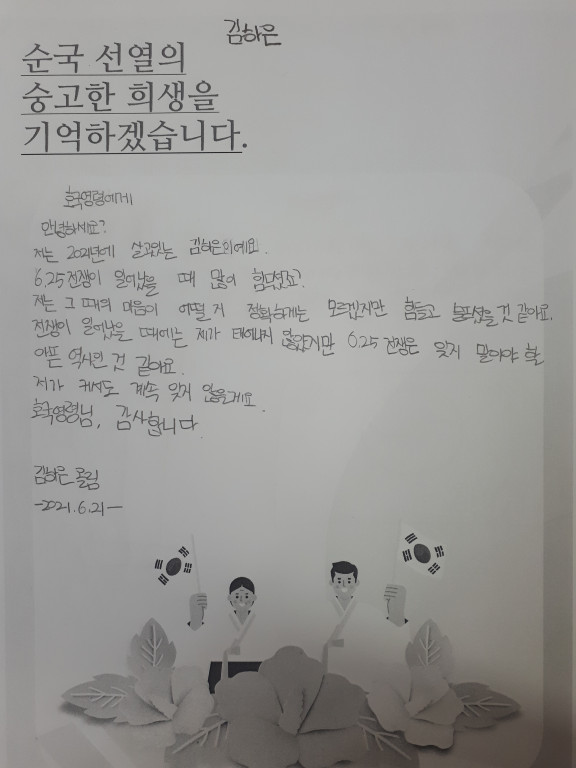 김하은
순국 선열의
숭고한 희생을
기억하겠습니다.
호국영령에게
안녕하세요?
저는 2021년에 살고있는 김하은이예요.
6.25전쟁이 일어났을 때 많이 힘드셨죠?
저는 그 때의 마음이 어떨 지 정확하게는 모르겠지만 힘들고 슬프셨을 것 같아요.
전쟁이 일어났을 때에는 제가 태어나지 않았지만 6.25 전쟁은 잊지 말아야 할
아픈 역사인 것 같아요.
저가 커서도 계속 잊지 않을게요.
호국영령님, 감사합니다.
김하은 올림
-2021.6.21-